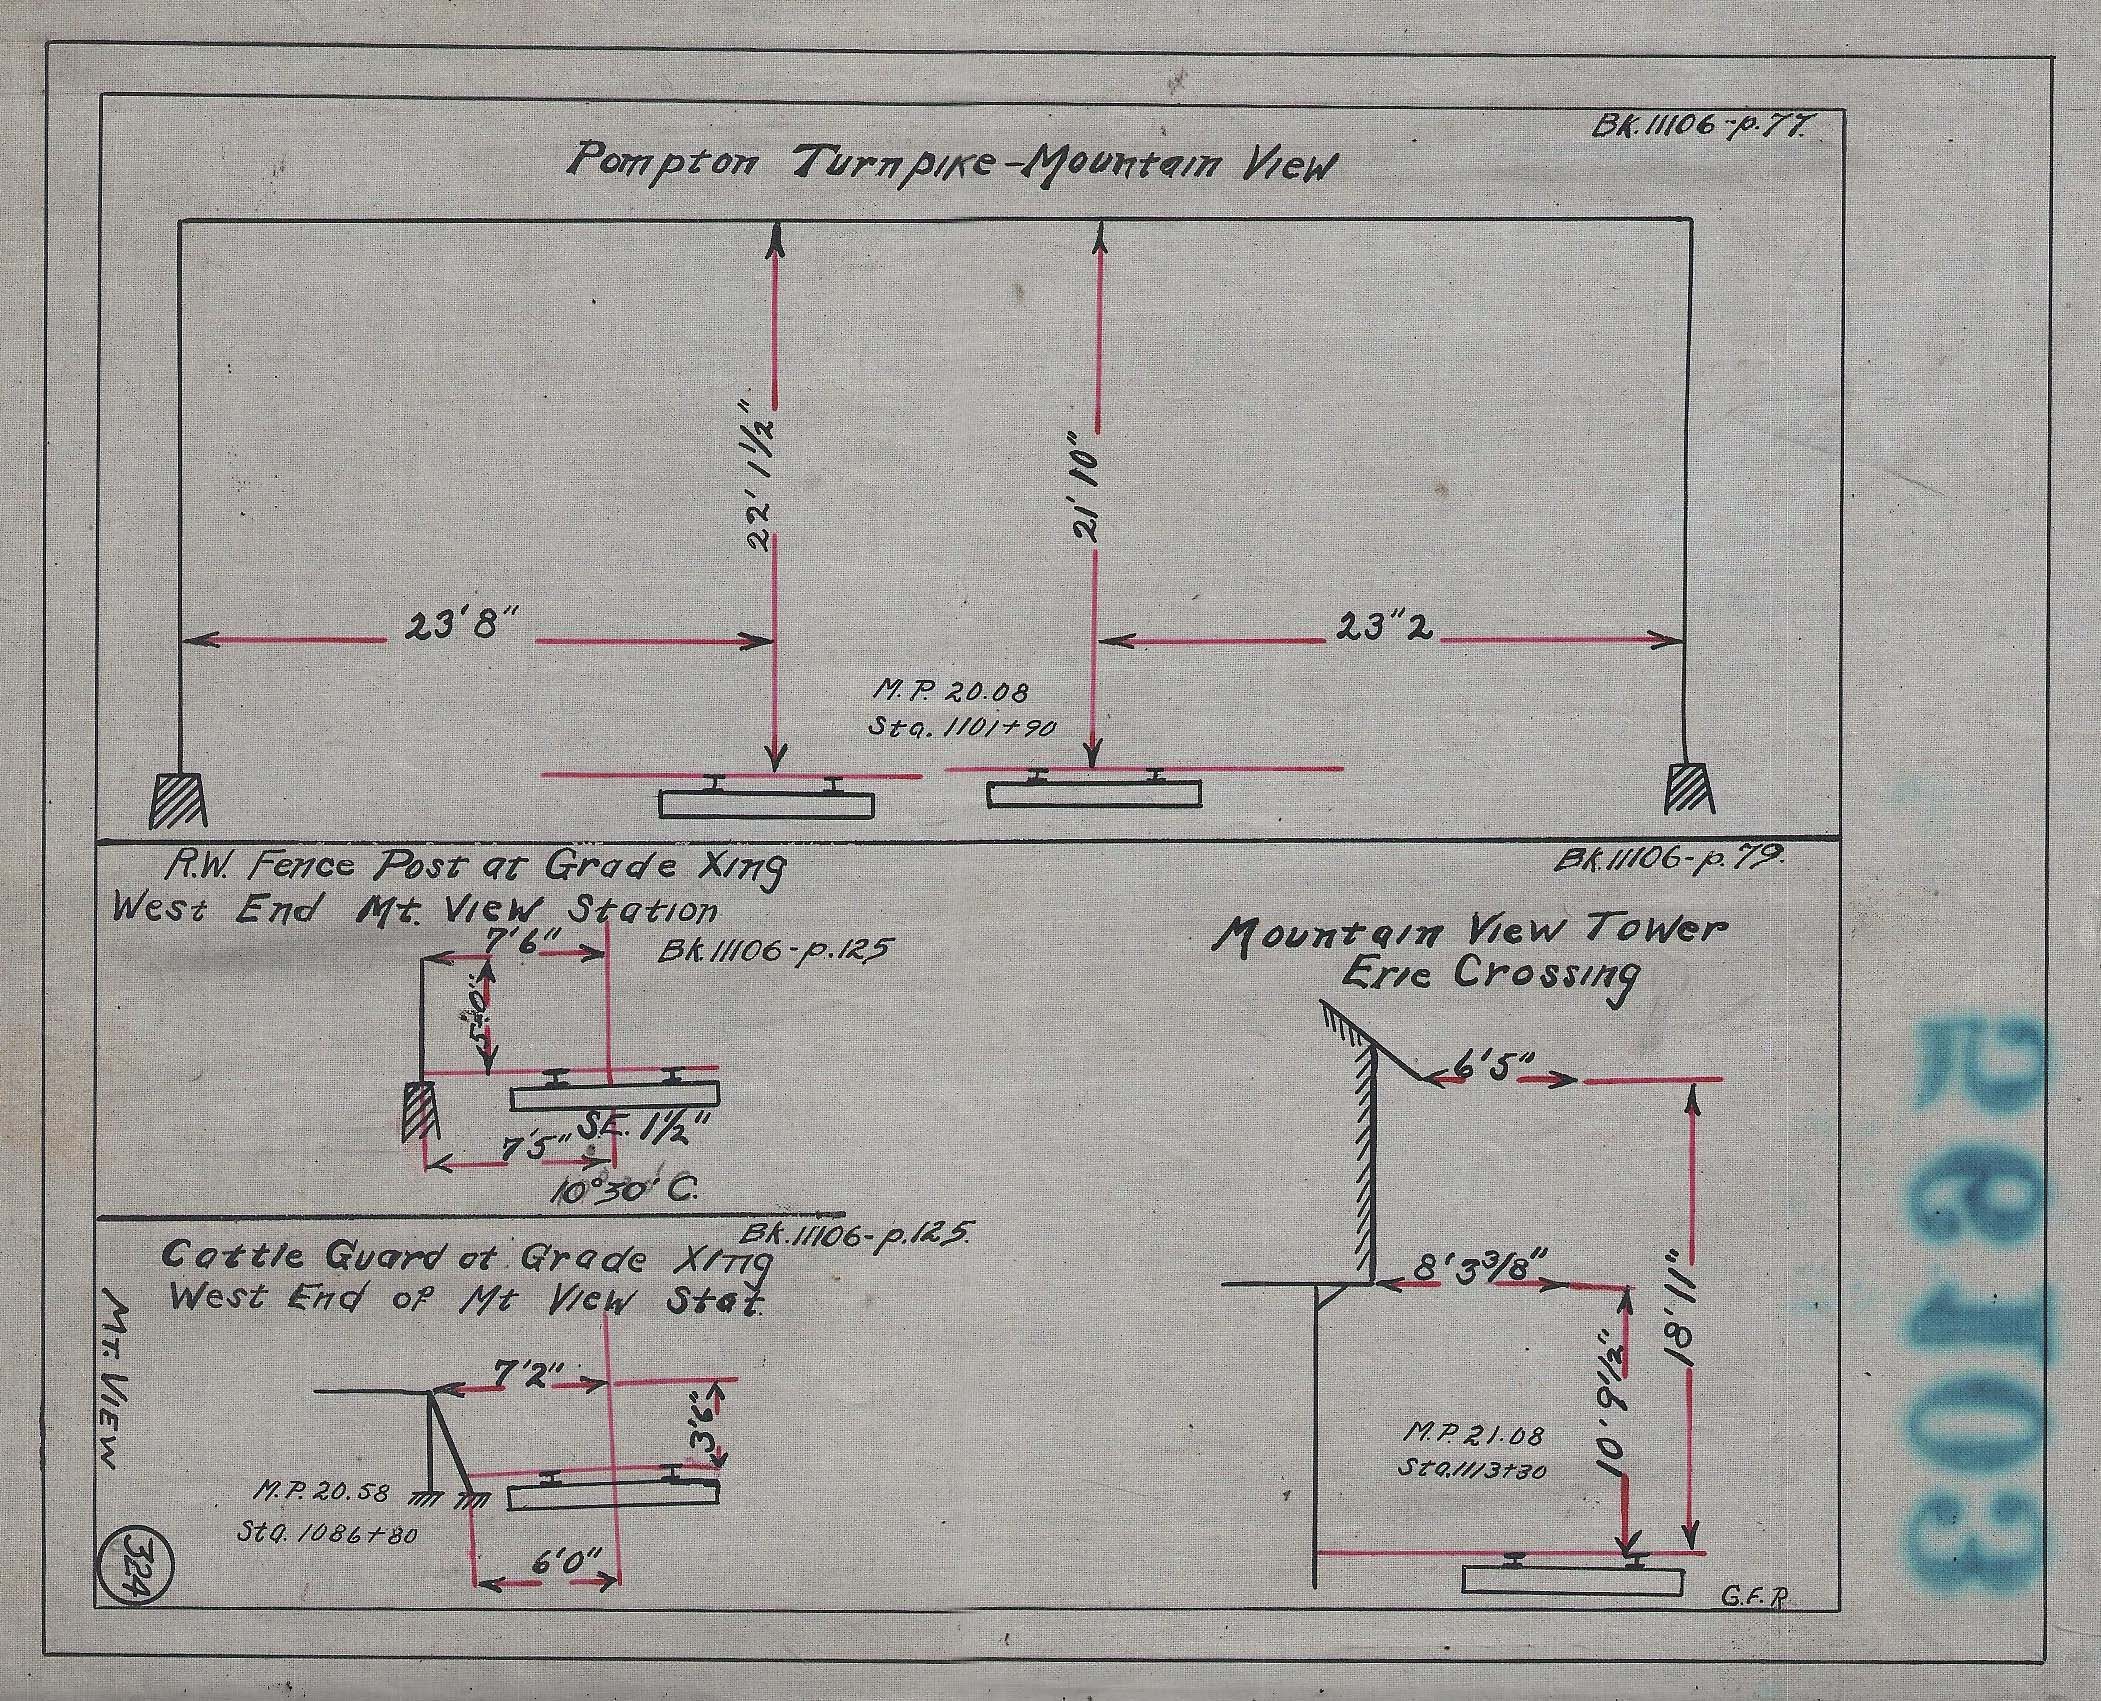 Bk. 11106-p.77.
Pompton Turnpike-Mountain View
22' 1½"
21' 10"
23' 8"
23"2
M.P. 20.08
Sta. 1101+90
R.W. Fence Post at Grade Xing
West End Mt. View Station
Bk. 11106-p.125
7'6"
5'0"
S.E. 1½"
7'5"
10°30' C.
Bk. 11106-p.79.
Mountain View Tower
Erie Crossing
6'5"
8' 3 3/8"
18'11"
10' 9½"
M.P. 21.08
Sta. 1113+30
G.F.R.
Bk. 11106-p.125.
Cattle Guard at Grade Xing
West End of Mt View Stat.
7'2"
3'6"
M.P. 20.58
Sta. 1086+80
6'0"
Mt. View
324
R9103